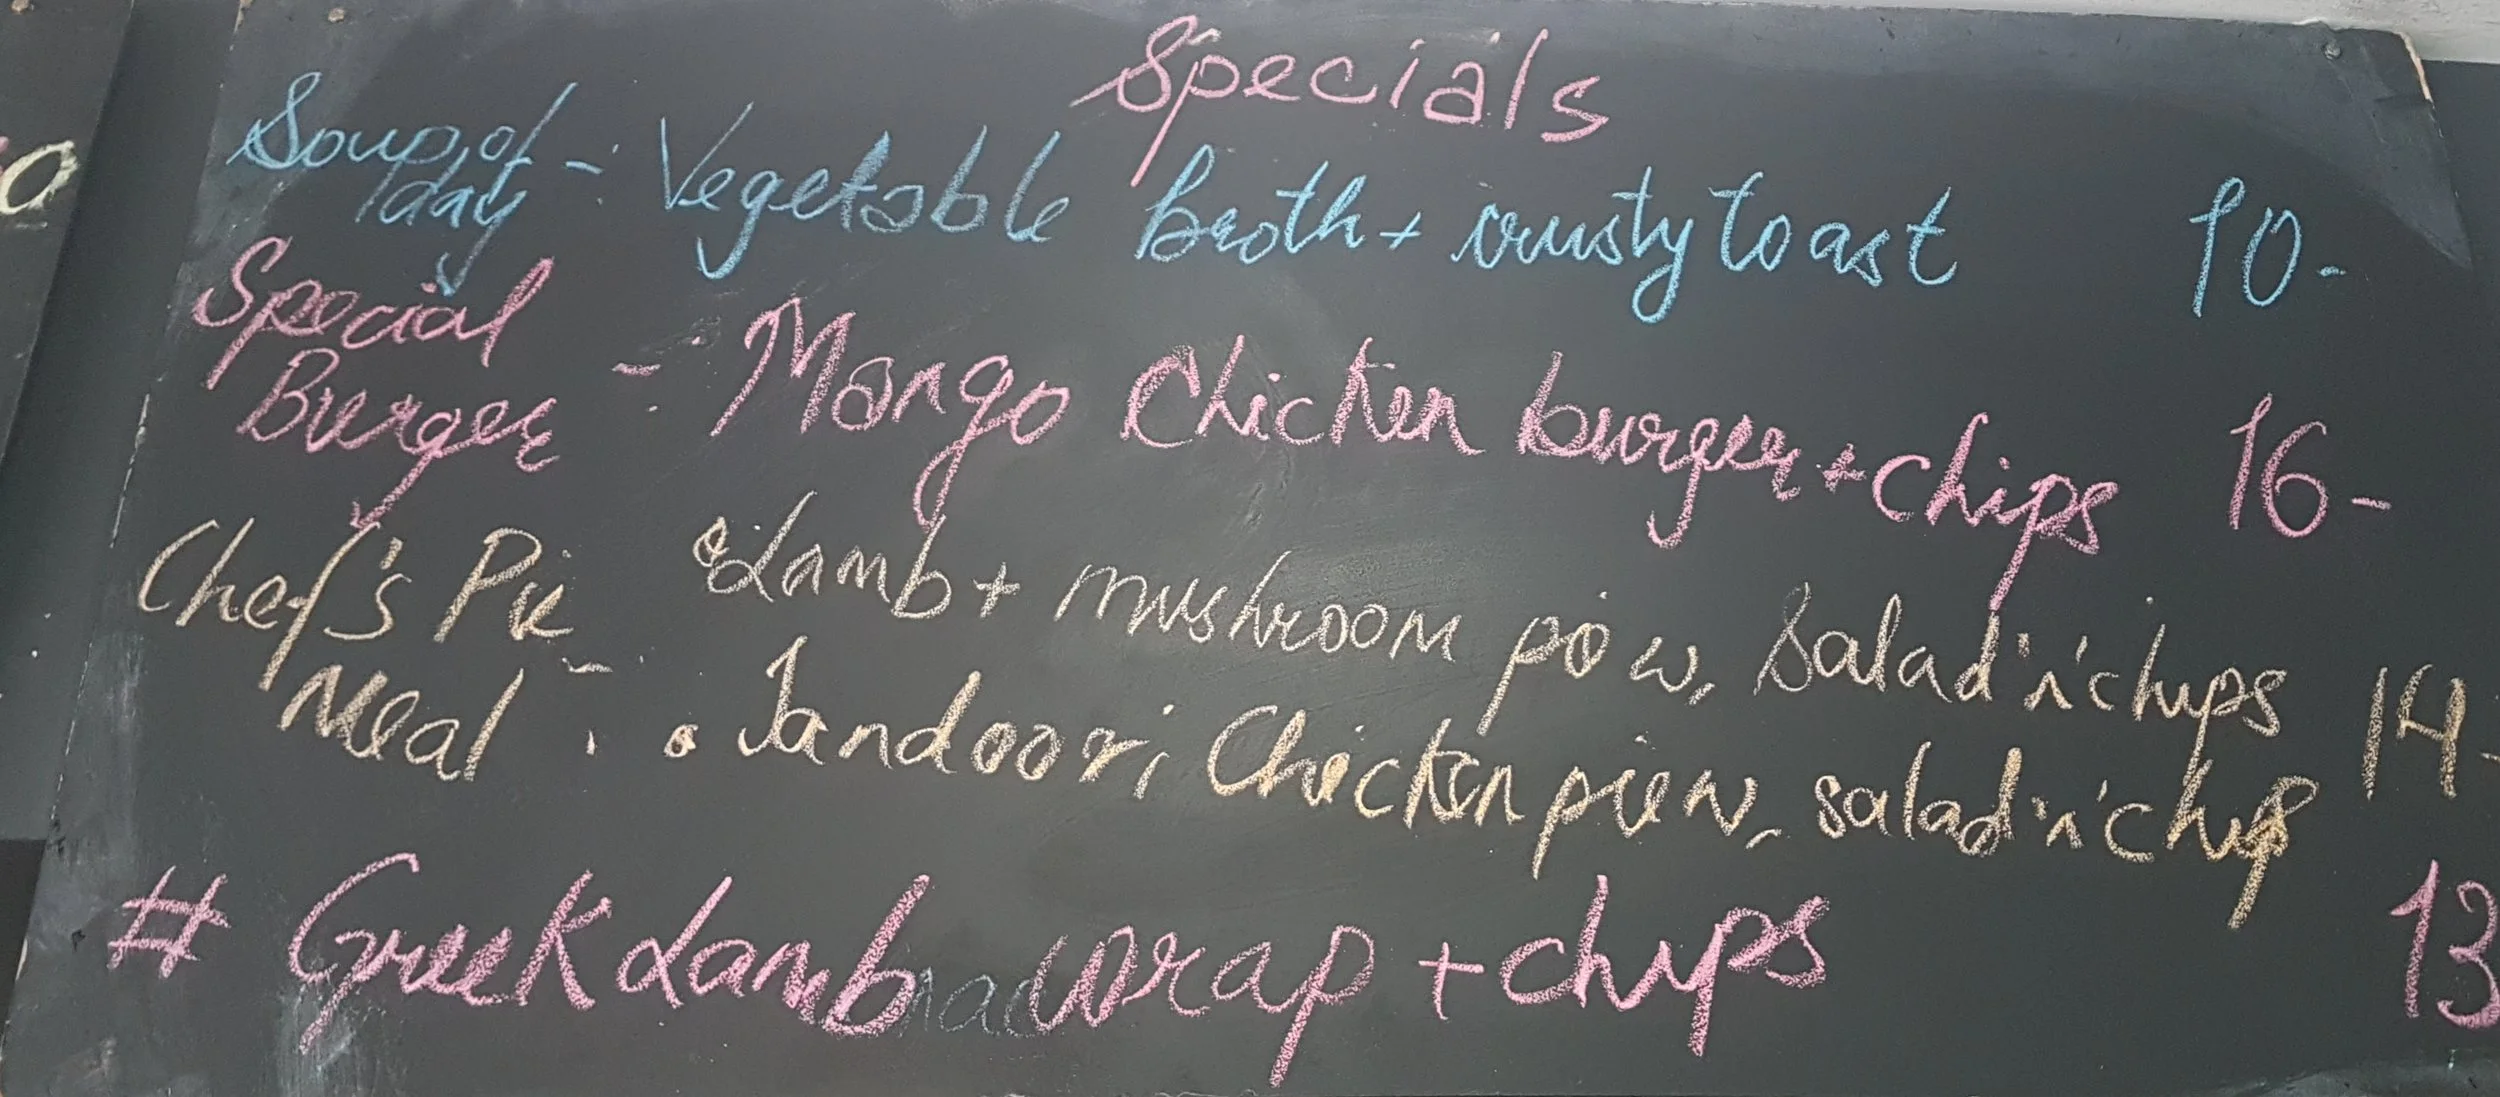 Specials
Soup of day -: Vegetable broth + crusty toast 10-
Special Burger -: Mango Chicken burger + chips 16-
Chef's Pie Meal -: Lamb + mushroom pow, Salad 'n' chips 14-
Tandoori Chicken piew, salad 'n' chips
# Greek Lamb wrap + chips 13